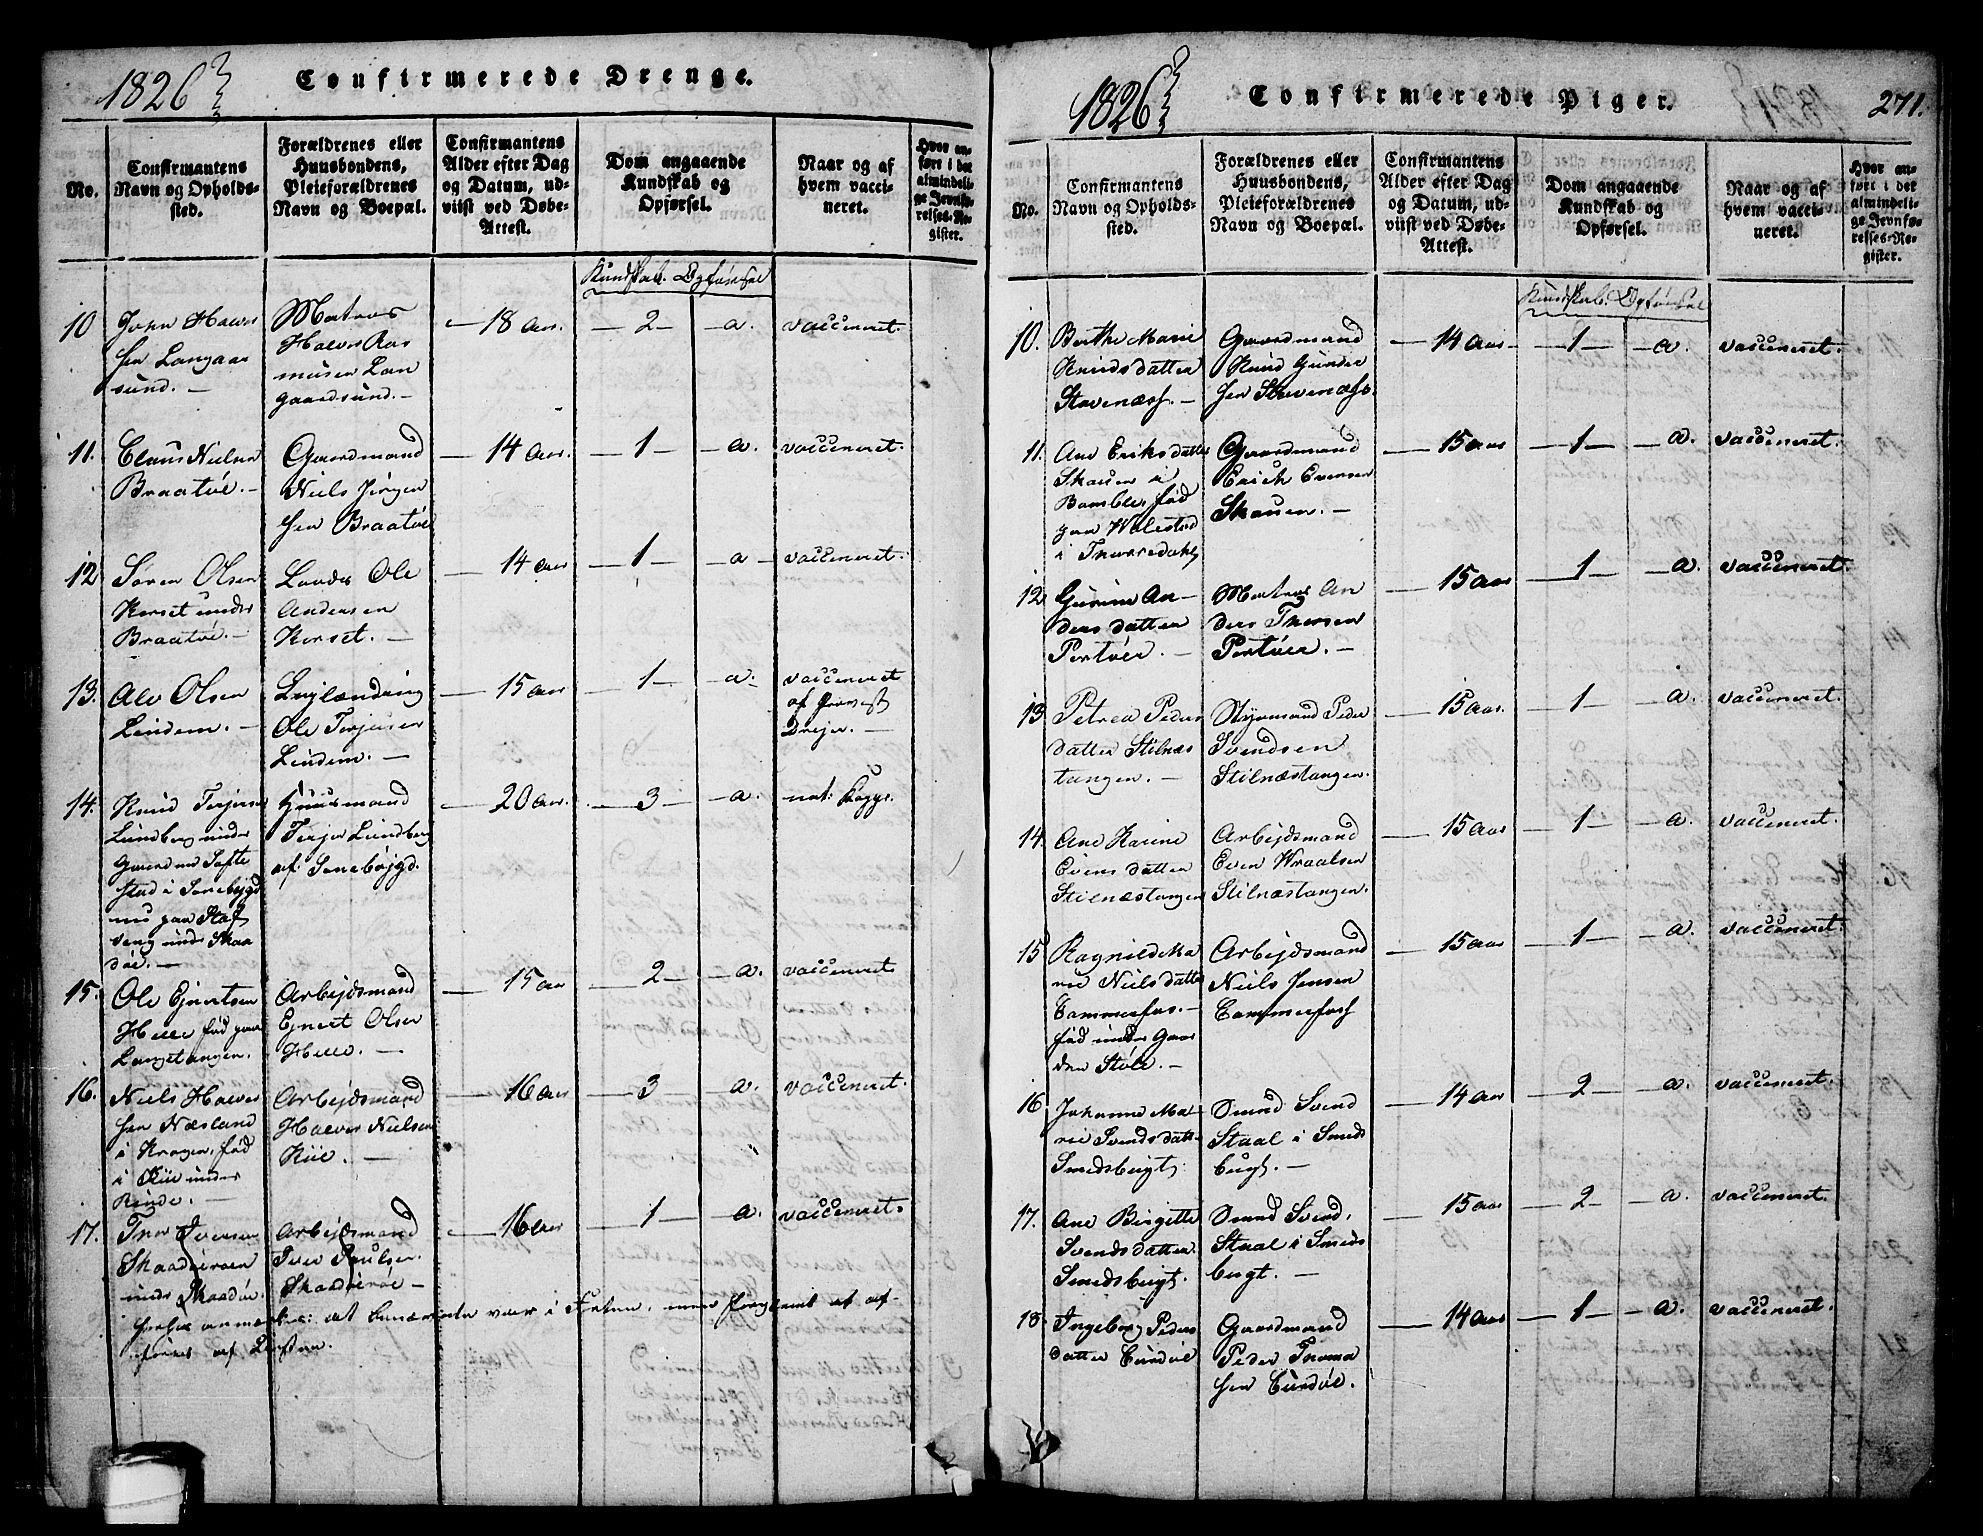 1826
Confirmerede Drenge.
No.
Confirmantens
Navn og Opholds-
sted.
Forældrenes eller
Huusbondens,
Pleieforældrenes
Navn og Boepæl.
Confirmantens
Alder efter Dag
og Datum, ud-
viist ved Døbe-
Attest.
Dom angaaende
Kundskab og
Opførsel.
Naar og af
hvem vacci-
neret.
Hvor an-
ført i det
almindeli-
ge Jevnfø-
relses-Re-
gister.
Kundskab. Opførsel
10 John Halvor
sen Langaar
sund. —
Matros
Halvor Ras
musen Lan
gaardsund. —
18 Aar. — 2 — a. vaccineret.
11. Claus Nielsen
Braatøe. —
Gaardmand
Niels Jørgen
sen Braatøe
14 Aar. — 1 — a. vaccineret.
12 Søren Olsen
Korset under
Braatøe. —
Lands Ole
Andersen
Korset. —
14 Aar — 1 — a vaccineret.
13. Alv Olsen
Lindem. —
Ole Terjesen
Lindem. —
15 Aar — 1 — a. vaccineret
af Provst
Drejer. —
14. Knud Terjesen
Lundberg under
Gaarden Tofte
stad i Sonebøjgd
nu paa Staf
seng under Skaa
døe. —
Huusmand
Terje Lundberg
af Sonebøjgd.
20 Aar. — 3 — a. nat: Kopper.
15. Ole Ejvertsen
Helle fød paa
Langetangen.
Arbejdsmand
Ejvert Olsen
Helle. —
15 Aar — 2 — a. vaccineret
16. Niels Halvor
sen Næsland
i Kragerø, fød
i Kiie under
Rinde. —
Arbejdsmand
Halvor Nielsen
Kiie. —
16 Aar — 3 — a. vaccineret.
17. Thor Iversen
Skaadøeroen
under Skaadøe.
Arbejdsmand
Iver Paulsen
Skaadøeroe —
16 Aar — 1 — a. vaccineret.
1826
Confirmerede Piger.
271.
No.
Confirmantens
Navn og Opholds-
sted.
Forældrenes eller
Huusbondens,
Pleieforældrenes
Navn og Boepæl.
Confirmantens
Alder efter Dag
og Datum, ud-
viist ved Døbe-
Attest.
Dom angaaende
Kundskab og
Opførsel.
Naar og af
hvem vacci-
neret.
Hvor an-
ført i det
almindeli-
ge Jevnfø-
relses-Re-
gister.
Kundskab. Opførsel
10. Berthe Marie
Knudsdatter
Stavenæss. —
Gaardmand
Knud Gunder
sen Stavenæss.
14 Aar — 1 — a. vaccineret.
11. Ane Eriksdatter
Skouen i
Bamble, fød
paa Wolestad
i Thorsedahl
Gaardmand
Erich Evensen
Skouen. —
15 Aar — 1 — a. vaccineret.
12 Gurine An-
ders datter
Portøer. —
Matros An
ders Thorsen
Portøer. —
15 Aar — 1 — a. vaccineret.
13 Petrea Peders
datter Stilnæs
tangen. —
Styrmand Peder
Svendsen
Stilnæstangen.
15 Aar. — 1 — a. vaccineret.
14. Ane Karine
Evens datter
Stilnæstangen
Arbejdsmand
Even Wraalsen
Stilnæstangen.
15 Aar — 1 — a. vaccineret.
15 Ragnild Ma
rie Nielsdatter
Tammerfos. —
fød under Gaar
den Støle. —
Arbejdsmand
Niels Jensen
Tammerfoss
15 Aar — 1 — a. vaccineret.
16 Johanne Ma-
rie Svendsdatt.
Smedsbugt.
Smed Svend
Staal i Smeds
bugt. —
14 Aar — 2 — a. vaccineret.
17. Ane Birgette
Svendsdatter
Smedsbugt.
Smed Svend
Staal i Smeds
bugt. —
15 Aar — 2 — a. vaccineret.
18. Ingeborg Peders
datter Eurdøe
Gaardmand
Peder Thoma
sen Eurdøe.
14 Aar — 1 — a. vaccineret.